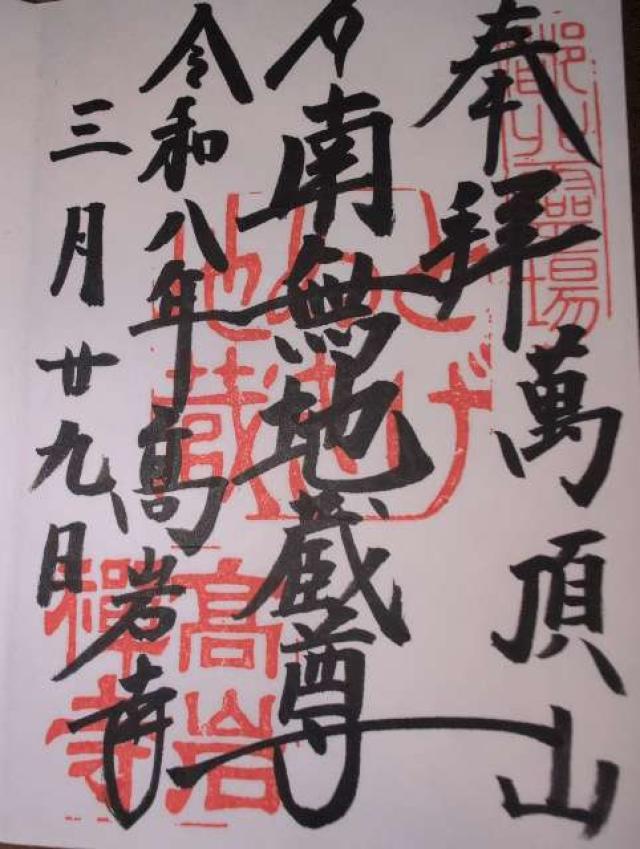 奉拝 萬頂山
南無地蔵尊
令和八年 高岩寺
三月廿九日
靈場
とげ
ぬき
地蔵
高岩
禪寺